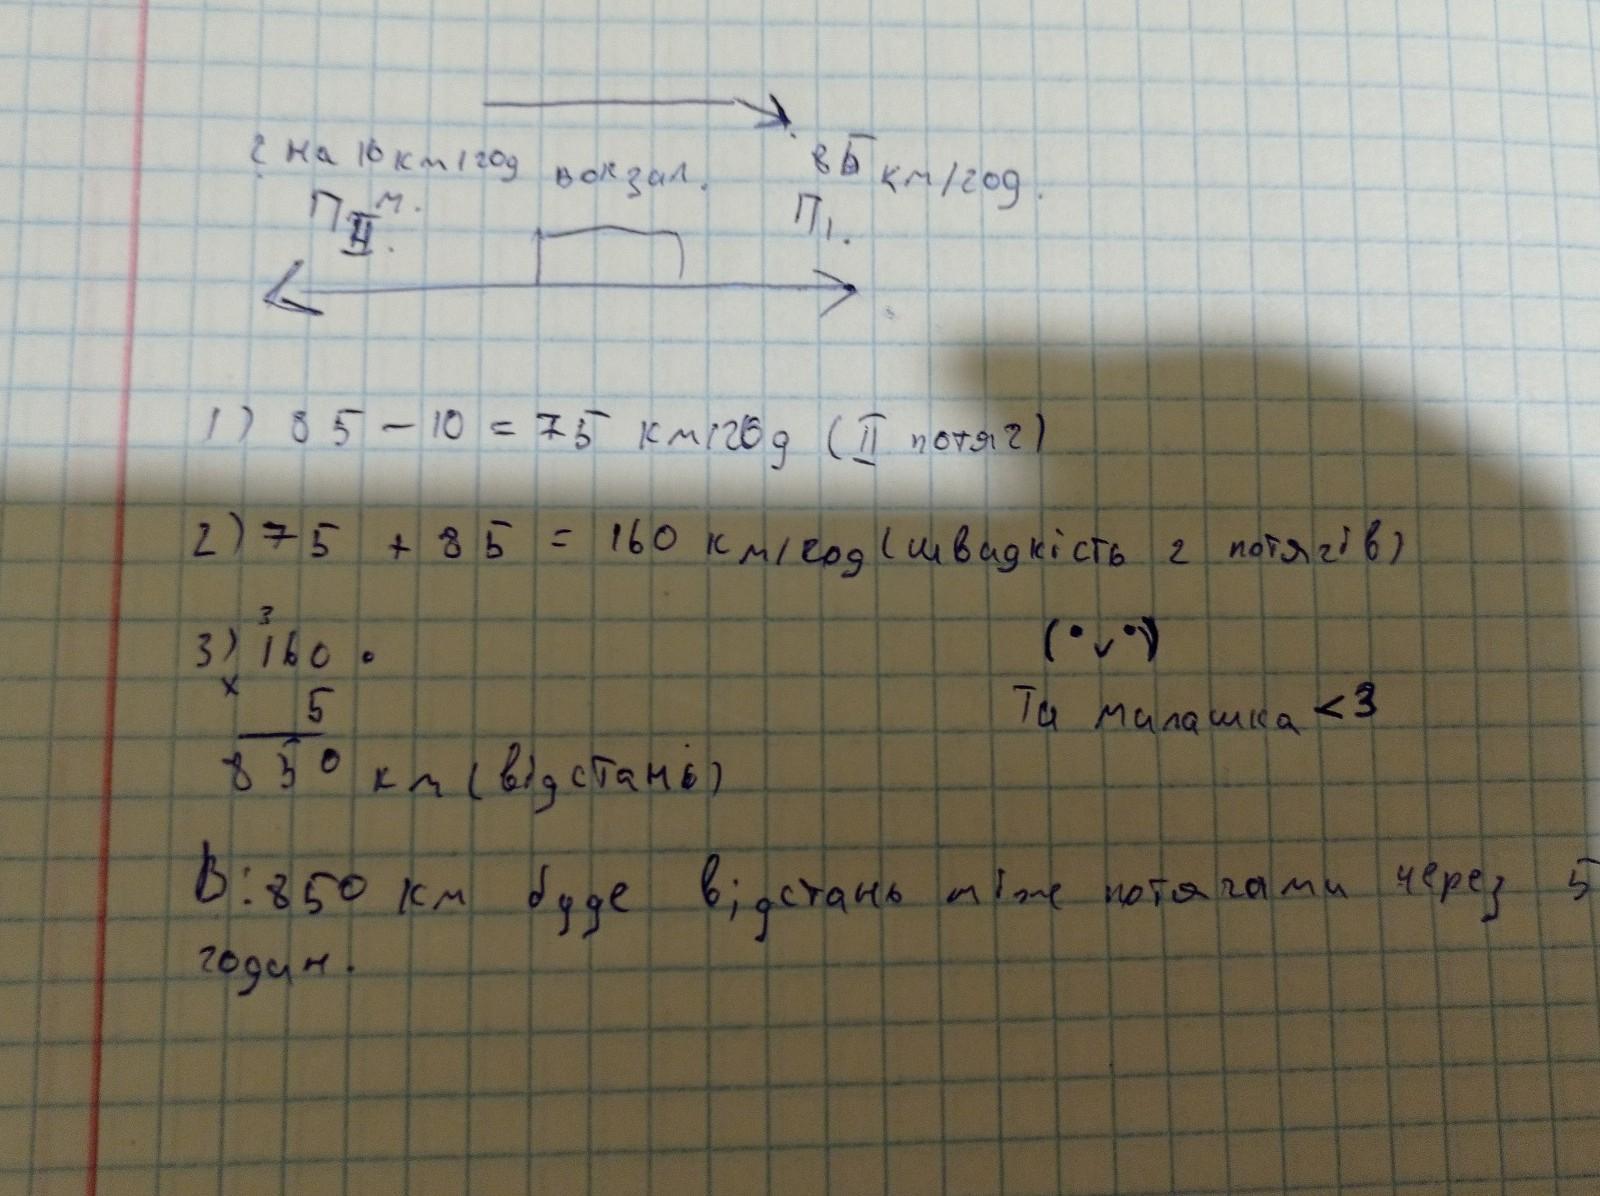 ? на 10 км/год вокзал. 85 км/год.
П II м. П1.
1) 85 - 10 = 75 км/год (II потяг)
2) 75 + 85 = 160 км/год (швидкість 2 потягів)
3
3) 160 •
× 5
850 км (відстань)
(•v•)
Ти милашка <3
В: 850 км буде відстань між потягами через 5
годин.